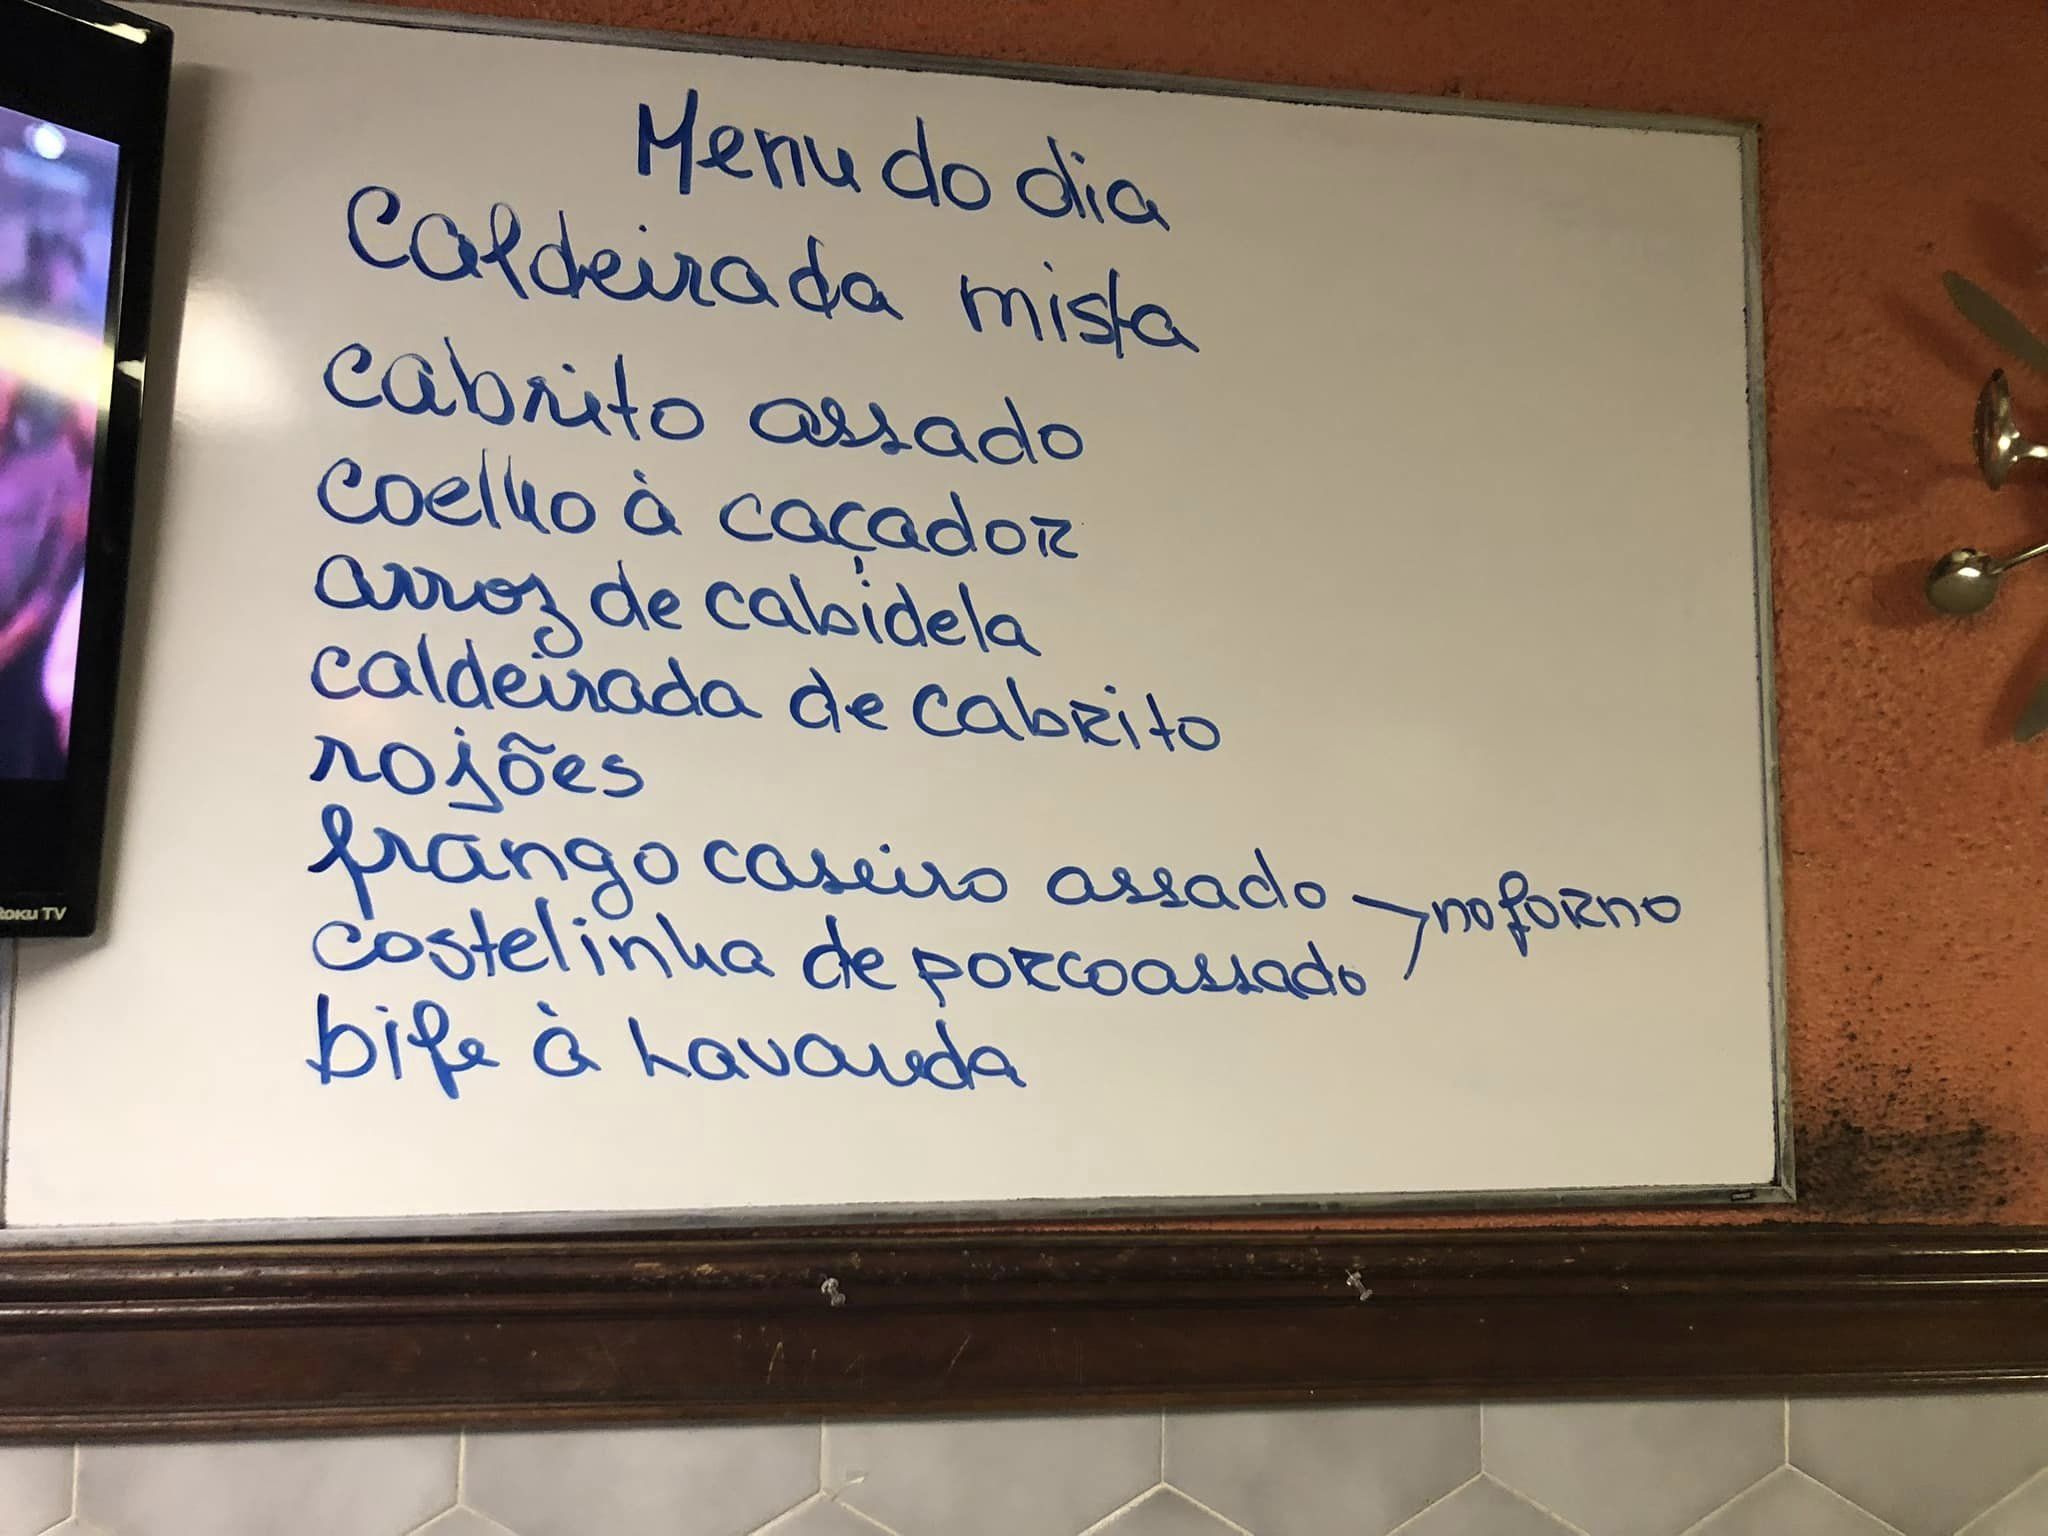 Menu do dia
Caldeirada mista
cabrito assado
coelho à caçador
arroz de cabidela
caldeirada de cabrito
rojões
frango caseiro assado
no forno
costelinha de porco assado
bife à Lavanda
Roku TV